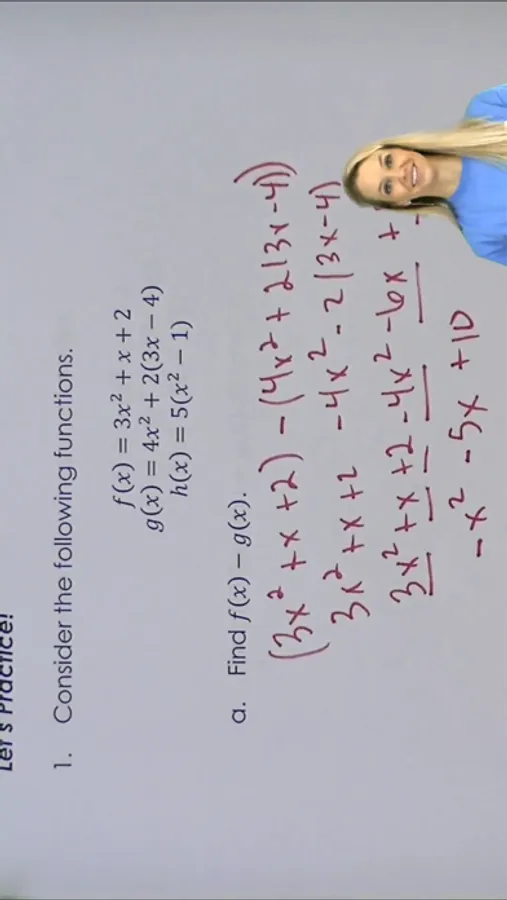 Let's Practice!
1. Consider the following functions.
f(x) = 3x² + x + 2
g(x) = 4x² + 2(3x − 4)
h(x) = 5(x² − 1)
a. Find f(x) − g(x).
(3x² + x + 2) − (4x² + 2(3x − 4))
3x² + x + 2 − 4x² − 2(3x − 4)
3x² + x + 2 − 4x² − 6x +
− x² − 5x + 10